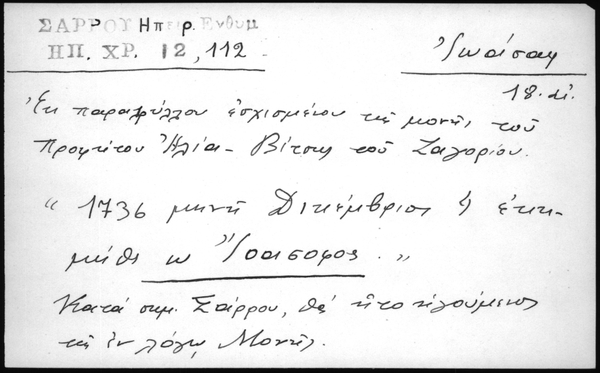 ΣΑΡΡΟΥ Ηπειρ. Ενθυμ
ΗΠ. ΧΡ. 12, 112
Ἰωάσαφ
18. αἰ.
Ἐκ παραφύλλου ἐσχισμένου τῆς μονῆς τοῦ
Προφήτου Ἠλία - Βίτσης τοῦ Ζαγορίου.
“ 1736 μηνῆ Δικέμβριος ἐκοι-
μήθι ω Ἰοασοφος. „
Κατά σημ. Σάρρου, θά ἦτο ἡγούμενος
τῆς ἐν λόγῳ Μονῆς.